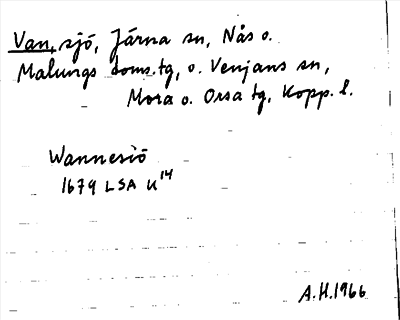 Van, sjö, Järna sn, Nås o.
Malungs doms.tg, o. Venjans sn,
Mora o. Orsa tg, Kopp. l.
Wannesiö
1679 LSA U 14
A.H. 1966